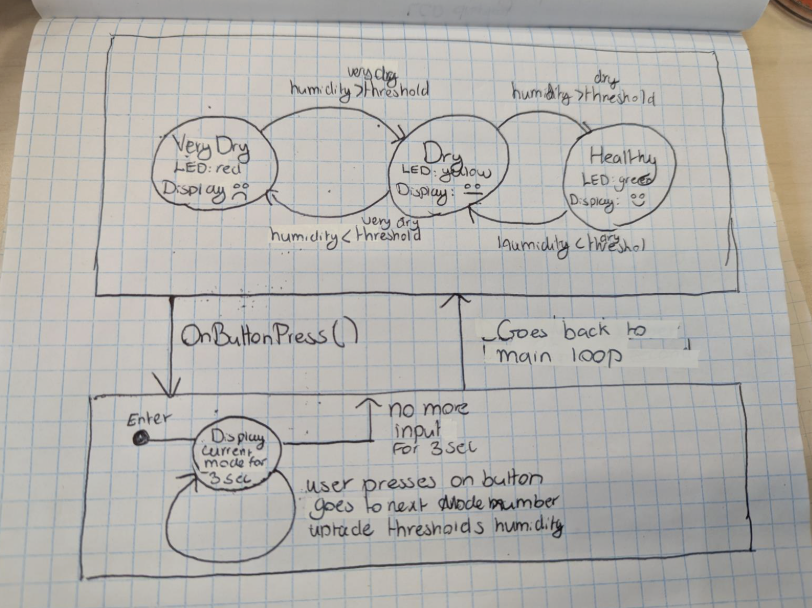 very dry
humidity > threshold
dry
humidity > threshold
Very Dry
LED: red
Display
Dry
LED: yellow
Display:
Healthy
LED: green
Display:
very dry
humidity < threshold
dry
humidity < threshol
OnButtonPress()
Goes back to
main loop
Enter
Display
current
mode for
3 sec
no more
input
For 3 sec
user presses on button
goes to next mode number
thresholds humidity